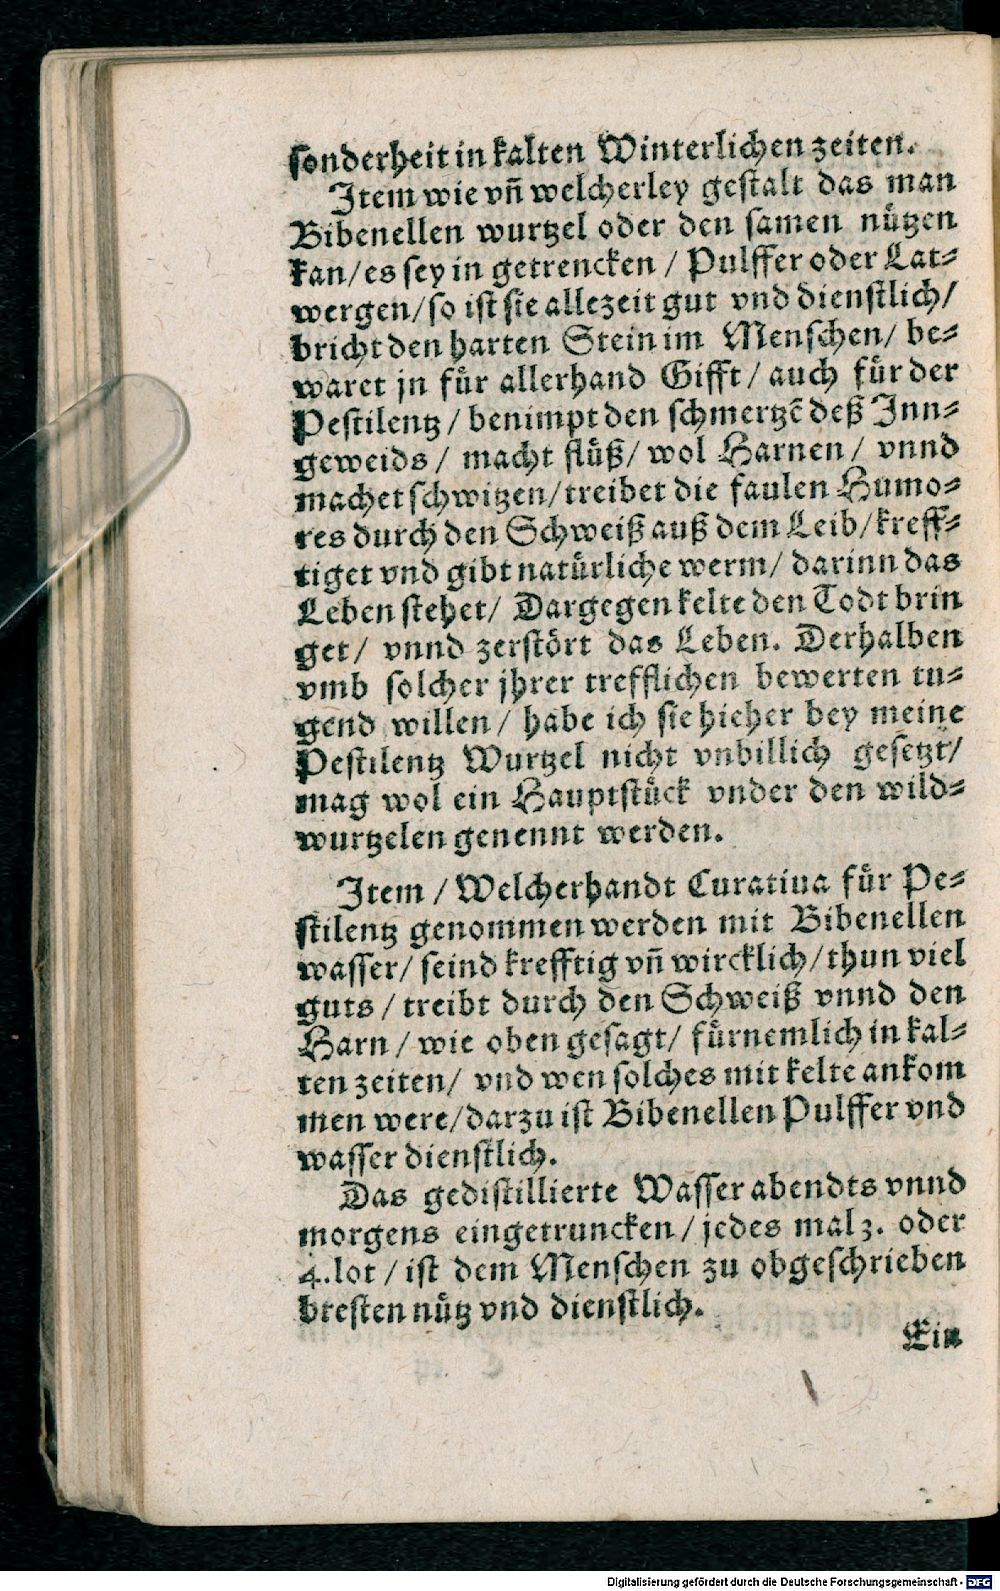 sonderheit in kalten Winterlichen zeiten.
Item wie vñ welcherley gestalt das man
Bibenellen wurtzel oder den samen nützen
kan/es sey in getrencken / Pulffer oder Lat-
wergen/so ist sie allezeit gut vnd dienstlich/
bricht den harten Stein im Menschen/ be-
waret jn für allerhand Gifft/ auch für der
Pestilentz / benimpt den schmertzẽ deß Inn-
geweids / macht flüß/ wol Harnen / vnnd
machet schwitzen/treibet die faulen Humo-
res durch den Schweiß auß dem Leib/kreff-
tiget vnd gibt natürliche werm/ darinn das
Leben stehet/ Dargegen kelte den Todt brin
get/ vnnd zerstört das Leben. Derhalben
vmb solcher jhrer trefflichen bewerten tu-
gend willen / habe ich sie hieher bey meine
Pestilentz Wurtzel nicht vnbillich gesetzt/
mag wol ein Hauptstück vnder den wild-
wurtzelen genennt werden.
Item / Welcherhandt Curatiua für Pe-
stilentz genommen werden mit Bibenellen
wasser/ seind krefftig vñ wircklich/thun viel
guts / treibt durch den Schweiß vnnd den
Harn / wie oben gesagt/ fürnemlich in kal-
ten zeiten/ vnd wen solches mit kelte ankom
men were/darzu ist Bibenellen Pulffer vnd
wasser dienstlich.
Das gedistillierte Wasser abendts vnnd
morgens eingetruncken / jedes mal 3. oder
4.lot / ist dem Menschen zu obgeschrieben
bresten nütz vnd dienstlich.
Ein
Digitalisierung gefördert durch die Deutsche Forschungsgemeinschaft - DFG